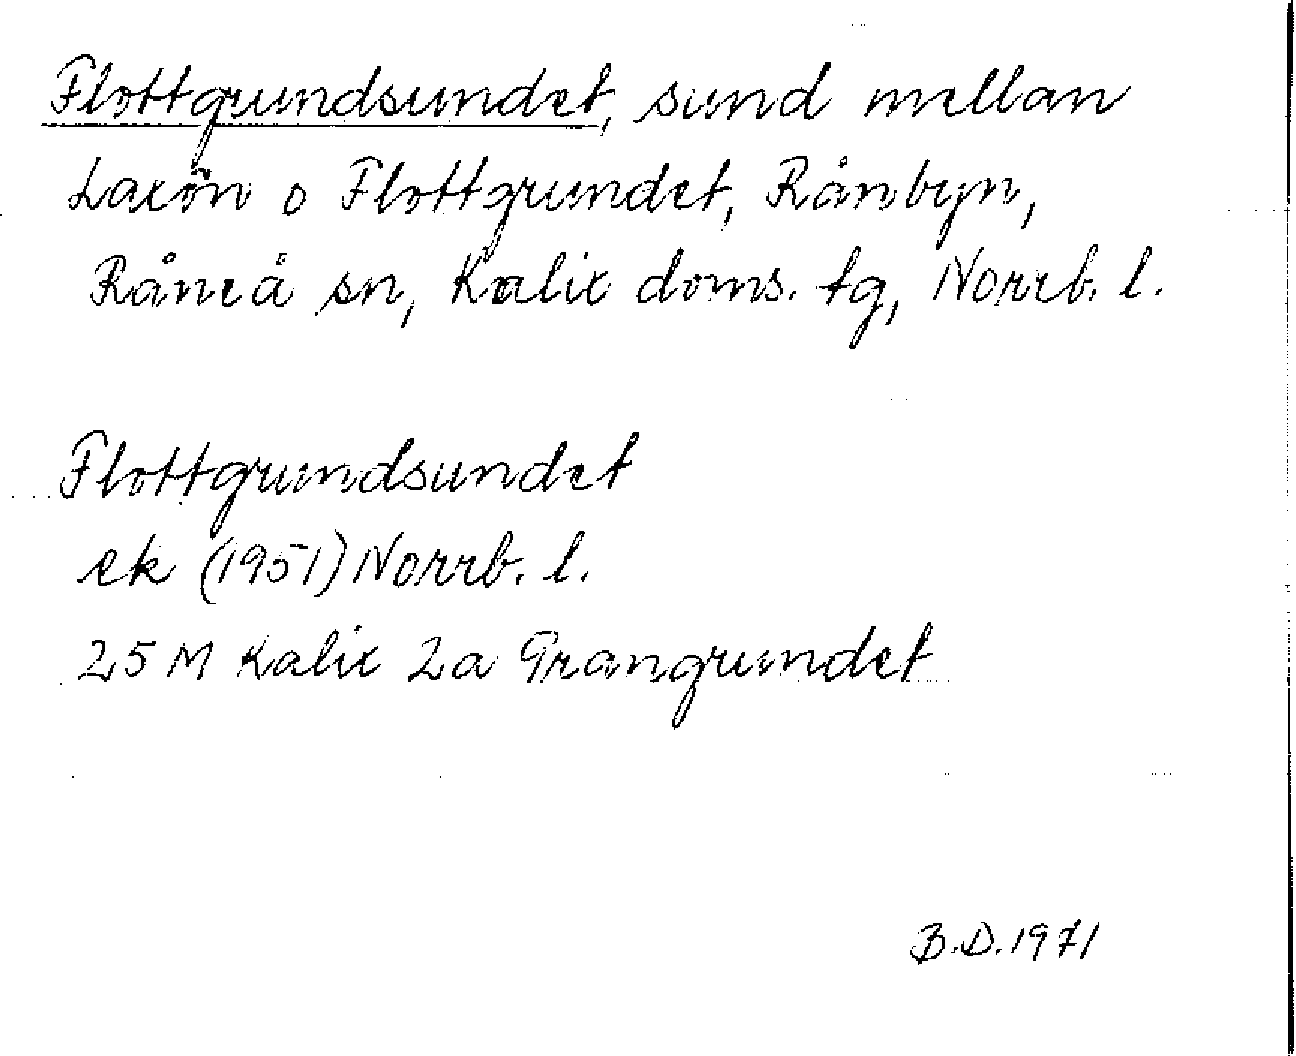 Flottgrundsundet, sund mellan
Laxön o Flottgrundet, Rånbyn,
Råneå sn, Kalix doms. tg, Norrb. l.
Flottgrundsundet
ek (1951) Norrb. l.
25 M Kalix 2a Grangrundet
B.D. 1971